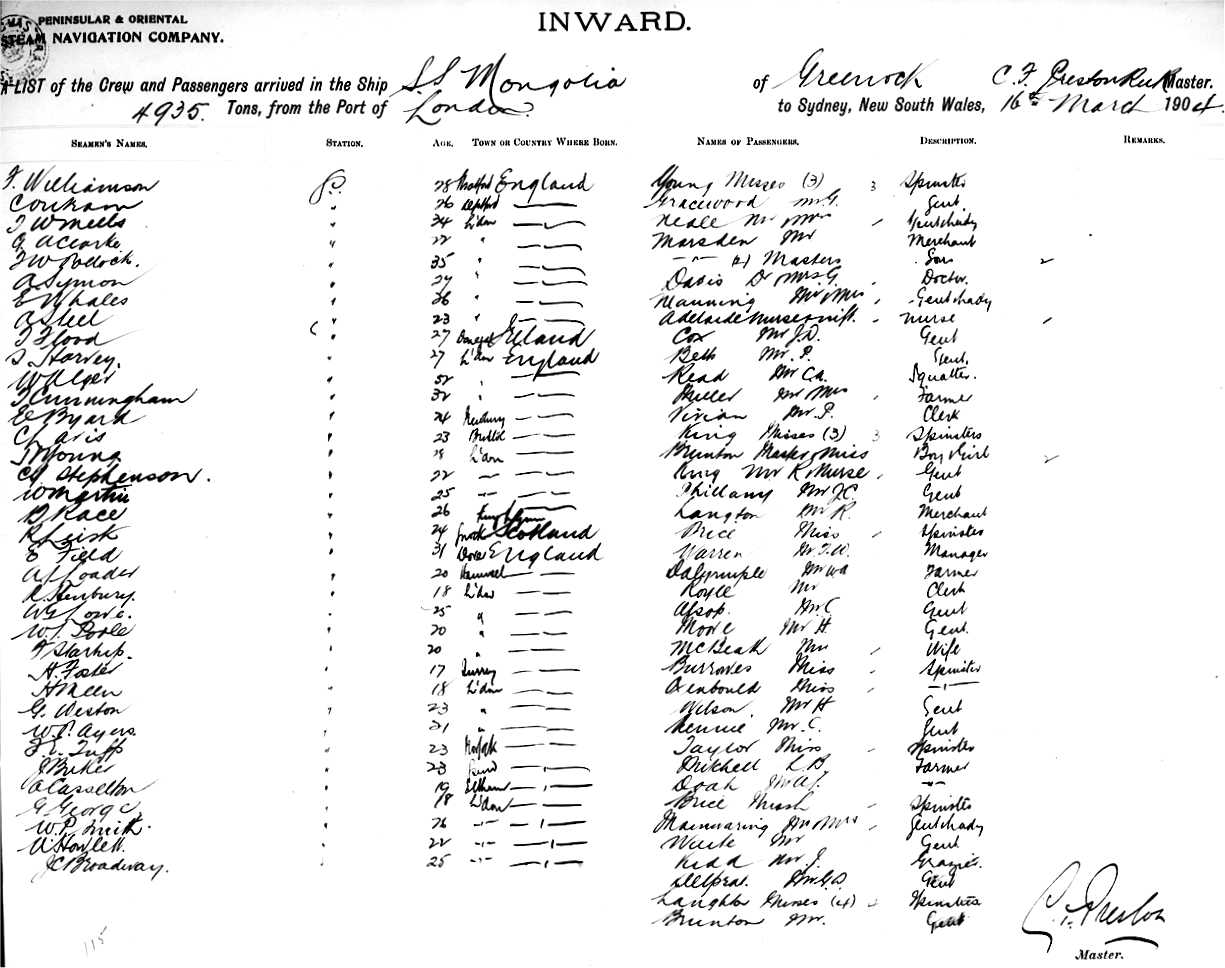 PENINSULAR & ORIENTAL
STEAM NAVIGATION COMPANY.
INWARD.
A LIST of the Crew and Passengers arrived in the Ship SS Mongolia of Greenock C. F. Preston Master.
4935. Tons, from the Port of London to Sydney, New South Wales, 16th March 1904.
SEAMEN'S NAMES. STATION. AGE. TOWN OR COUNTRY WHERE BORN. NAMES OF PASSENGERS. DESCRIPTION. REMARKS.
F. Williamson 28 England Young Misses (3) 3 Spinsters
26 Deptford Gracewood Mr G. Gent
24 L'don Neale Mr Mrs Gent & Lady
G A Clarke 22 " Marsden Mr Merchant
35 " (4) Masters Sons
A Symon 27 " Davis Dr Mrs G. Doctor.
E Whales 26 " Manning Mr & Mrs Gent & Lady
A Steel 23 " Adelaide Nurse Nurse
F Flood 27 Cox Mr J.D. Gent
S. Harvey. 27 L'don England Beth Mr. P. Gent.
W Alger 52 " Read Mr C.A. Squatter.
T Cunningham 32 " Mr Mrs Farmer
E C Byard 24 Newbury Vivian Mr. P. Clerk
23 Bristol King Misses (3) 3 Spinsters
Young L'don Brunton Master & Miss Boy & Girl
Stephenson. 22 King Mr R & Nurse Gent
W Martin 25 Phillany Mr J C Gent
D Race 26 Langton Mr R. Merchant
R Leisk 24 Scotland Price Miss Spinster
E Field 31 Dover England Warren Mr F.W. Manager
A J Loader 20 Hanwell Dalrymple Mr W A Farmer
R. Henbury. 18 L'don Royle Mr Clerk
25 " Alsop. Mr C Gent
W. J. Poole 20 " Moore Mr H. Gent.
F Starkip. 20 " McBeath Mrs Wife
H. Foster 17 Surrey Burrowes Miss Spinster
H Meen 18 L'don Oxenbould Miss
G. Weston 23 " Wilson Mr H Gent
W. P. Ayers 21 " Rennie Mr. C. Gent
F. E. Tuff 23 Norfolk Taylor Miss Spinster
J Baker 23 Mitchell L B Farmer
A Casselton 19 Eltham Doah Mr A J.
G George 18 L'don Brice Miss Spinster
W. P. Smith. 26 Mainwaring Mr Mrs Gent & Lady
A Howlett. 22 White Mr Gent
J C Broadway. 25 Kidd Mr J. Grazier.
Mr G D Gent
Laughton Misses (4) Spinsters
Brunton Mr. Gent
C. F. Preston
Master.
115